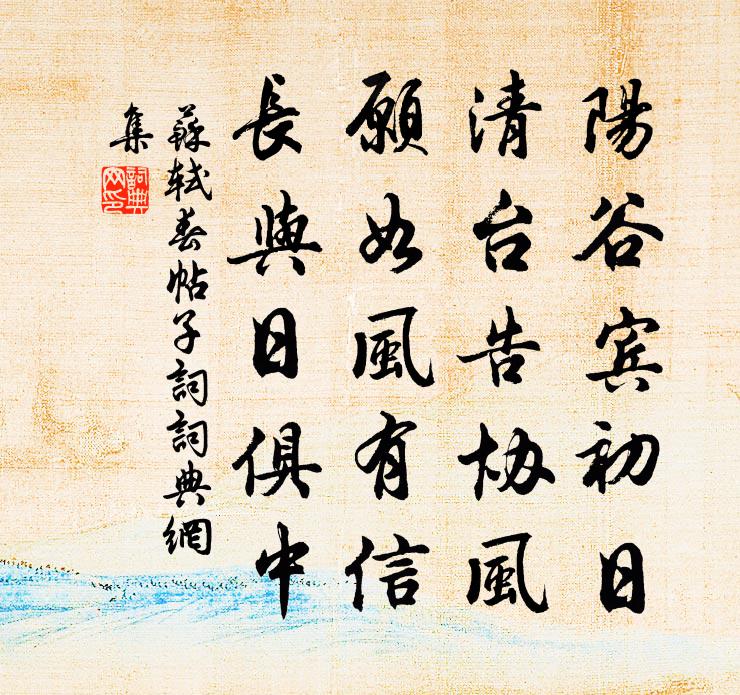 陽谷賓初日
清台告協風
願如風有信
長與日俱中
蘇軾春帖子詞詞典網
集
詞典
网印